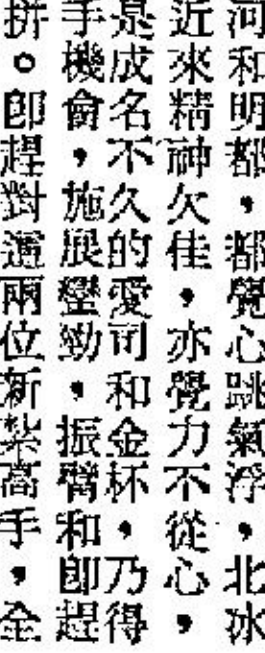 河和明都，都覺心跳氣浮，北冰
近來精神欠佳，亦覺力不從心，
是成名不久的愛司和金杯，乃得
手機會，施展蠻勁，振臂和卽趕
拼。卽趕對這兩位新紮高手，全